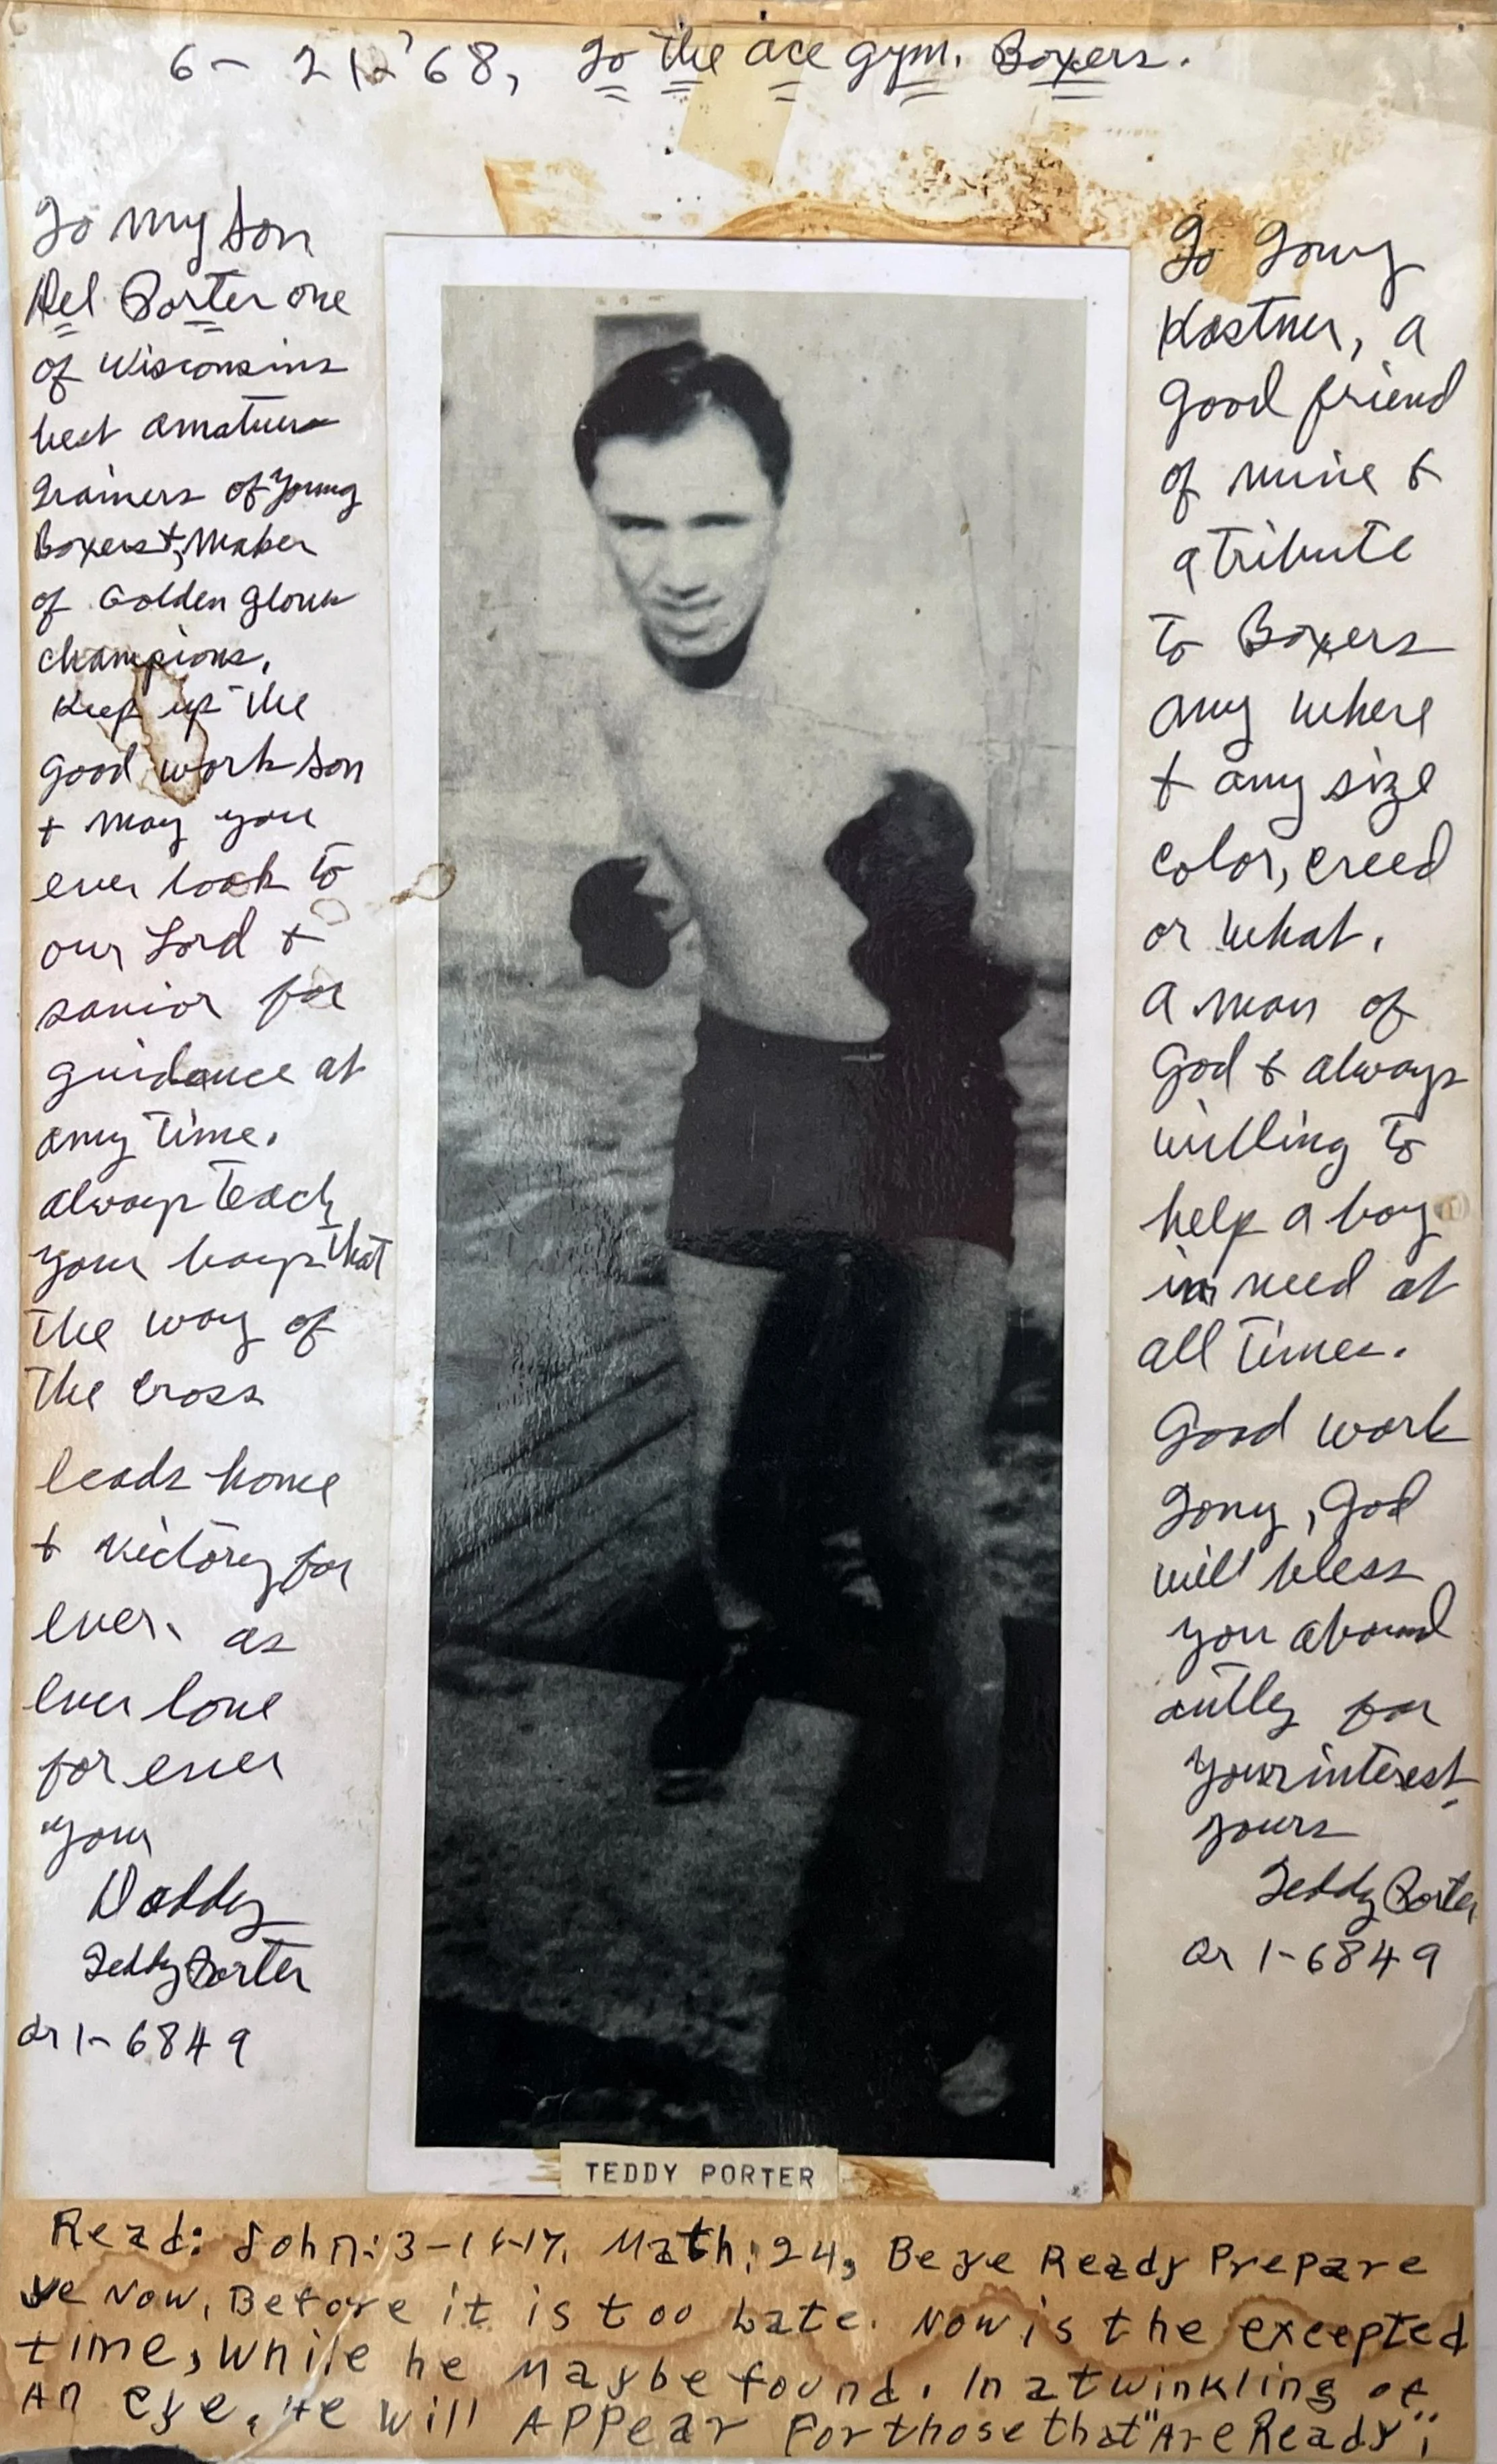 6- 21-'68, To the ace gym. Boxers.
To my son
Del Porter one
of Wisconsins
best amatuer
Trainers of young
Boxers +, Maker
of Golden Gloves
champions.
Keep up the
good work son
+ may you
ever look to
our Lord +
savior for
guidance at
any time.
always teach
your boys that
the way of
the cross
leads home
+ victory for
ever. as
ever love
for ever
your
Daddy
Teddy Porter
or 1-6849
To Tony
Kostner, a
good friend
of mine +
a tribute
to Boxers
any where
+ any size
color, creed
or what.
a man of
God + always
willing to
help a boy
in need at
all times.
Good work
Tony, God
will bless
you abound
antly for
your interest.
yours
Teddy Porter
or 1-6849
TEDDY PORTER
Read: John: 3-16-17. Math: 24, Be ye Ready Prepare
ye Now. Before it is too Late. Now is the excepted
time, while he maybe found. In a twinkling of
An eye, He will Appear For those that "Are Ready".